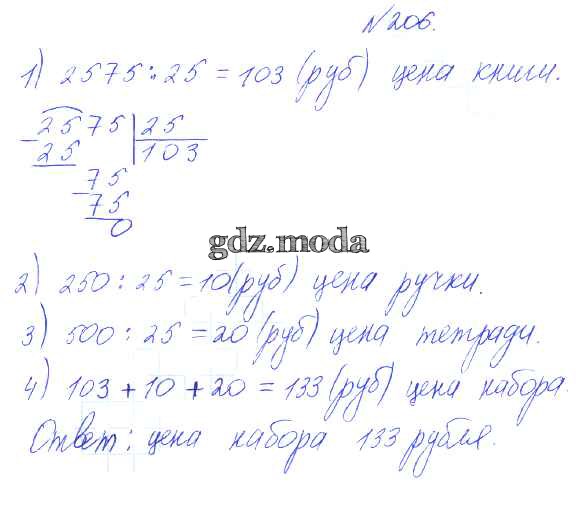 №206.
1) 2575:25 = 103 (руб) цена книги.
2575 25
25 103
75
75
0
gdz.moda
2) 250:25=10(руб) цена ручки.
3) 500:25=20 (руб) цена тетради.
4) 103+10+20 = 133(руб) цена набора.
Ответ: цена набора 133 рубля.